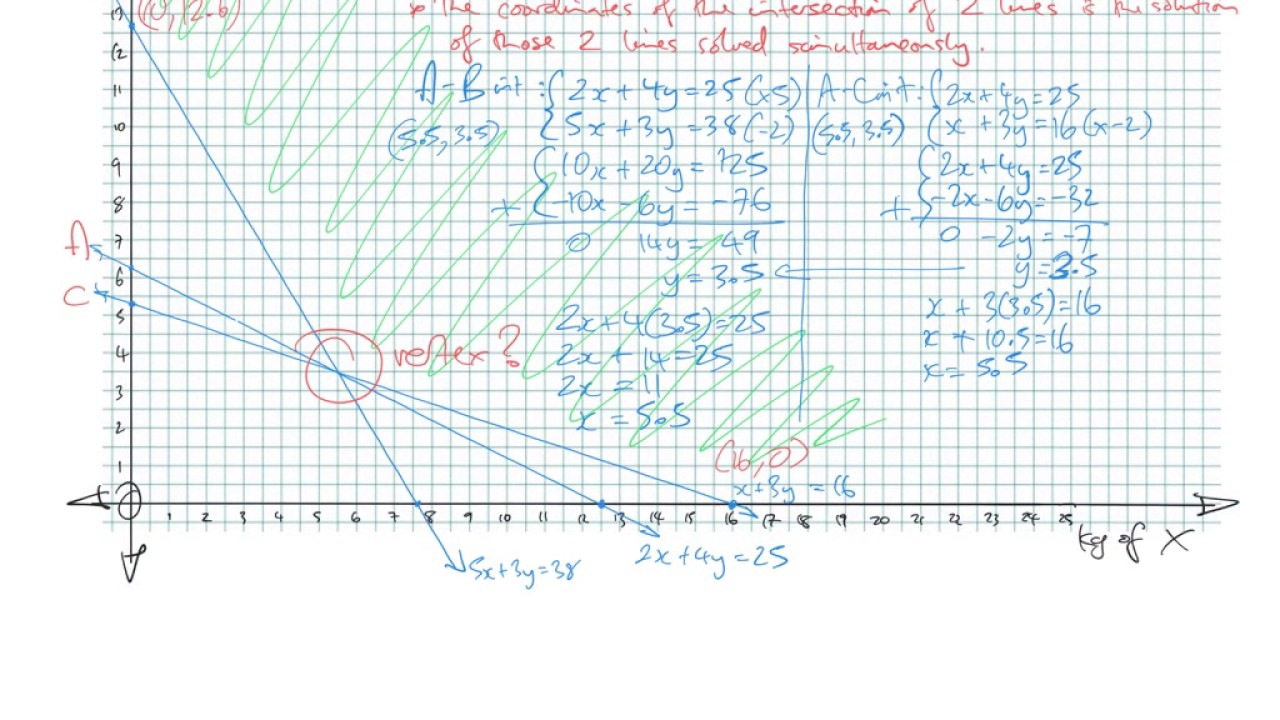 (0, 12.6)
* The coordinates of the intersection of 2 lines is the solution
of those 2 lines solved simultaneously.
A-B int: {2x + 4y = 25 (x5)
{5x + 3y = 38 (-2)
(5.5, 3.5)
{10x + 20y = 125
+ {-10x - 6y = -76
0 14y = 49
y = 3.5
2x + 4(3.5) = 25
2x + 14 = 25
2x = 11
x = 5.5
A-C int: {2x + 4y = 25
(5.5, 3.5) {x + 3y = 16 (x-2)
{2x + 4y = 25
+ {-2x - 6y = -32
0 -2y = -7
y = 3.5
x + 3(3.5) = 16
x + 10.5 = 16
x = 5.5
13
12
11
10
9
8
7
6
5
4
3
2
1
A
C
vertex?
(16, 0)
x + 3y = 16
0 1 2 3 4 5 6 7 8 9 10 11 12 13 14 15 16 17 18 19 20 21 22 23 24 25
kg of X
5x + 3y = 38
2x + 4y = 25